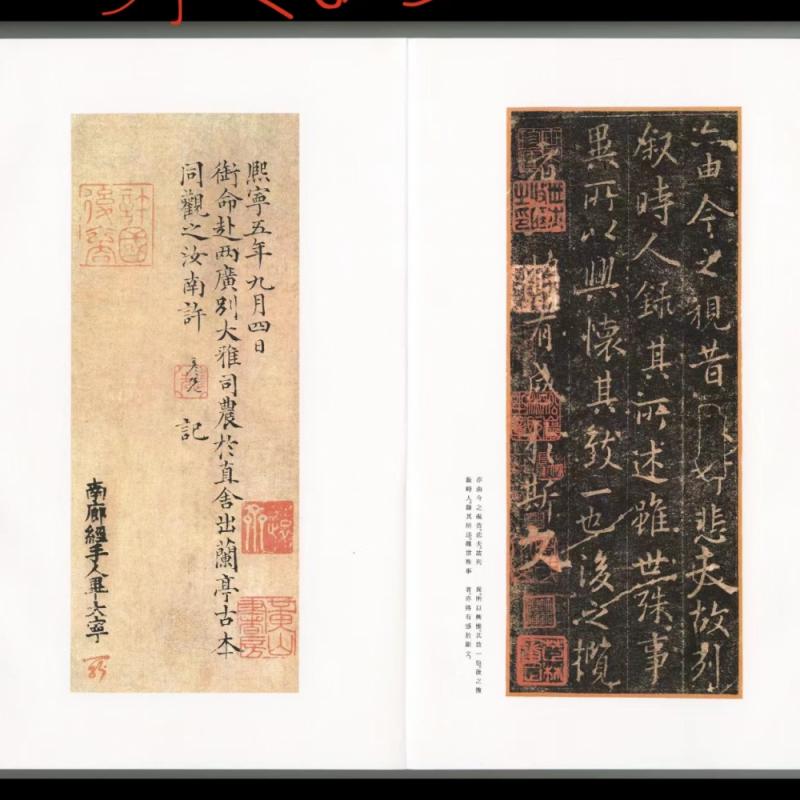 亦由今之視昔悲夫故列
叙時人錄其所述雖世殊事
異所以興懷其致一也後之攬
者亦將有感於斯文
亦由今之視昔悲夫故列
叙時人錄其所述雖世殊事
異所以興懷其致一也後之攬
者亦將有感於斯文
熙寧五年九月四日
銜命赴兩廣別大雅司農於直舍出蘭亭古本
同觀之汝南許彥先記
南廊經手人畢大寧